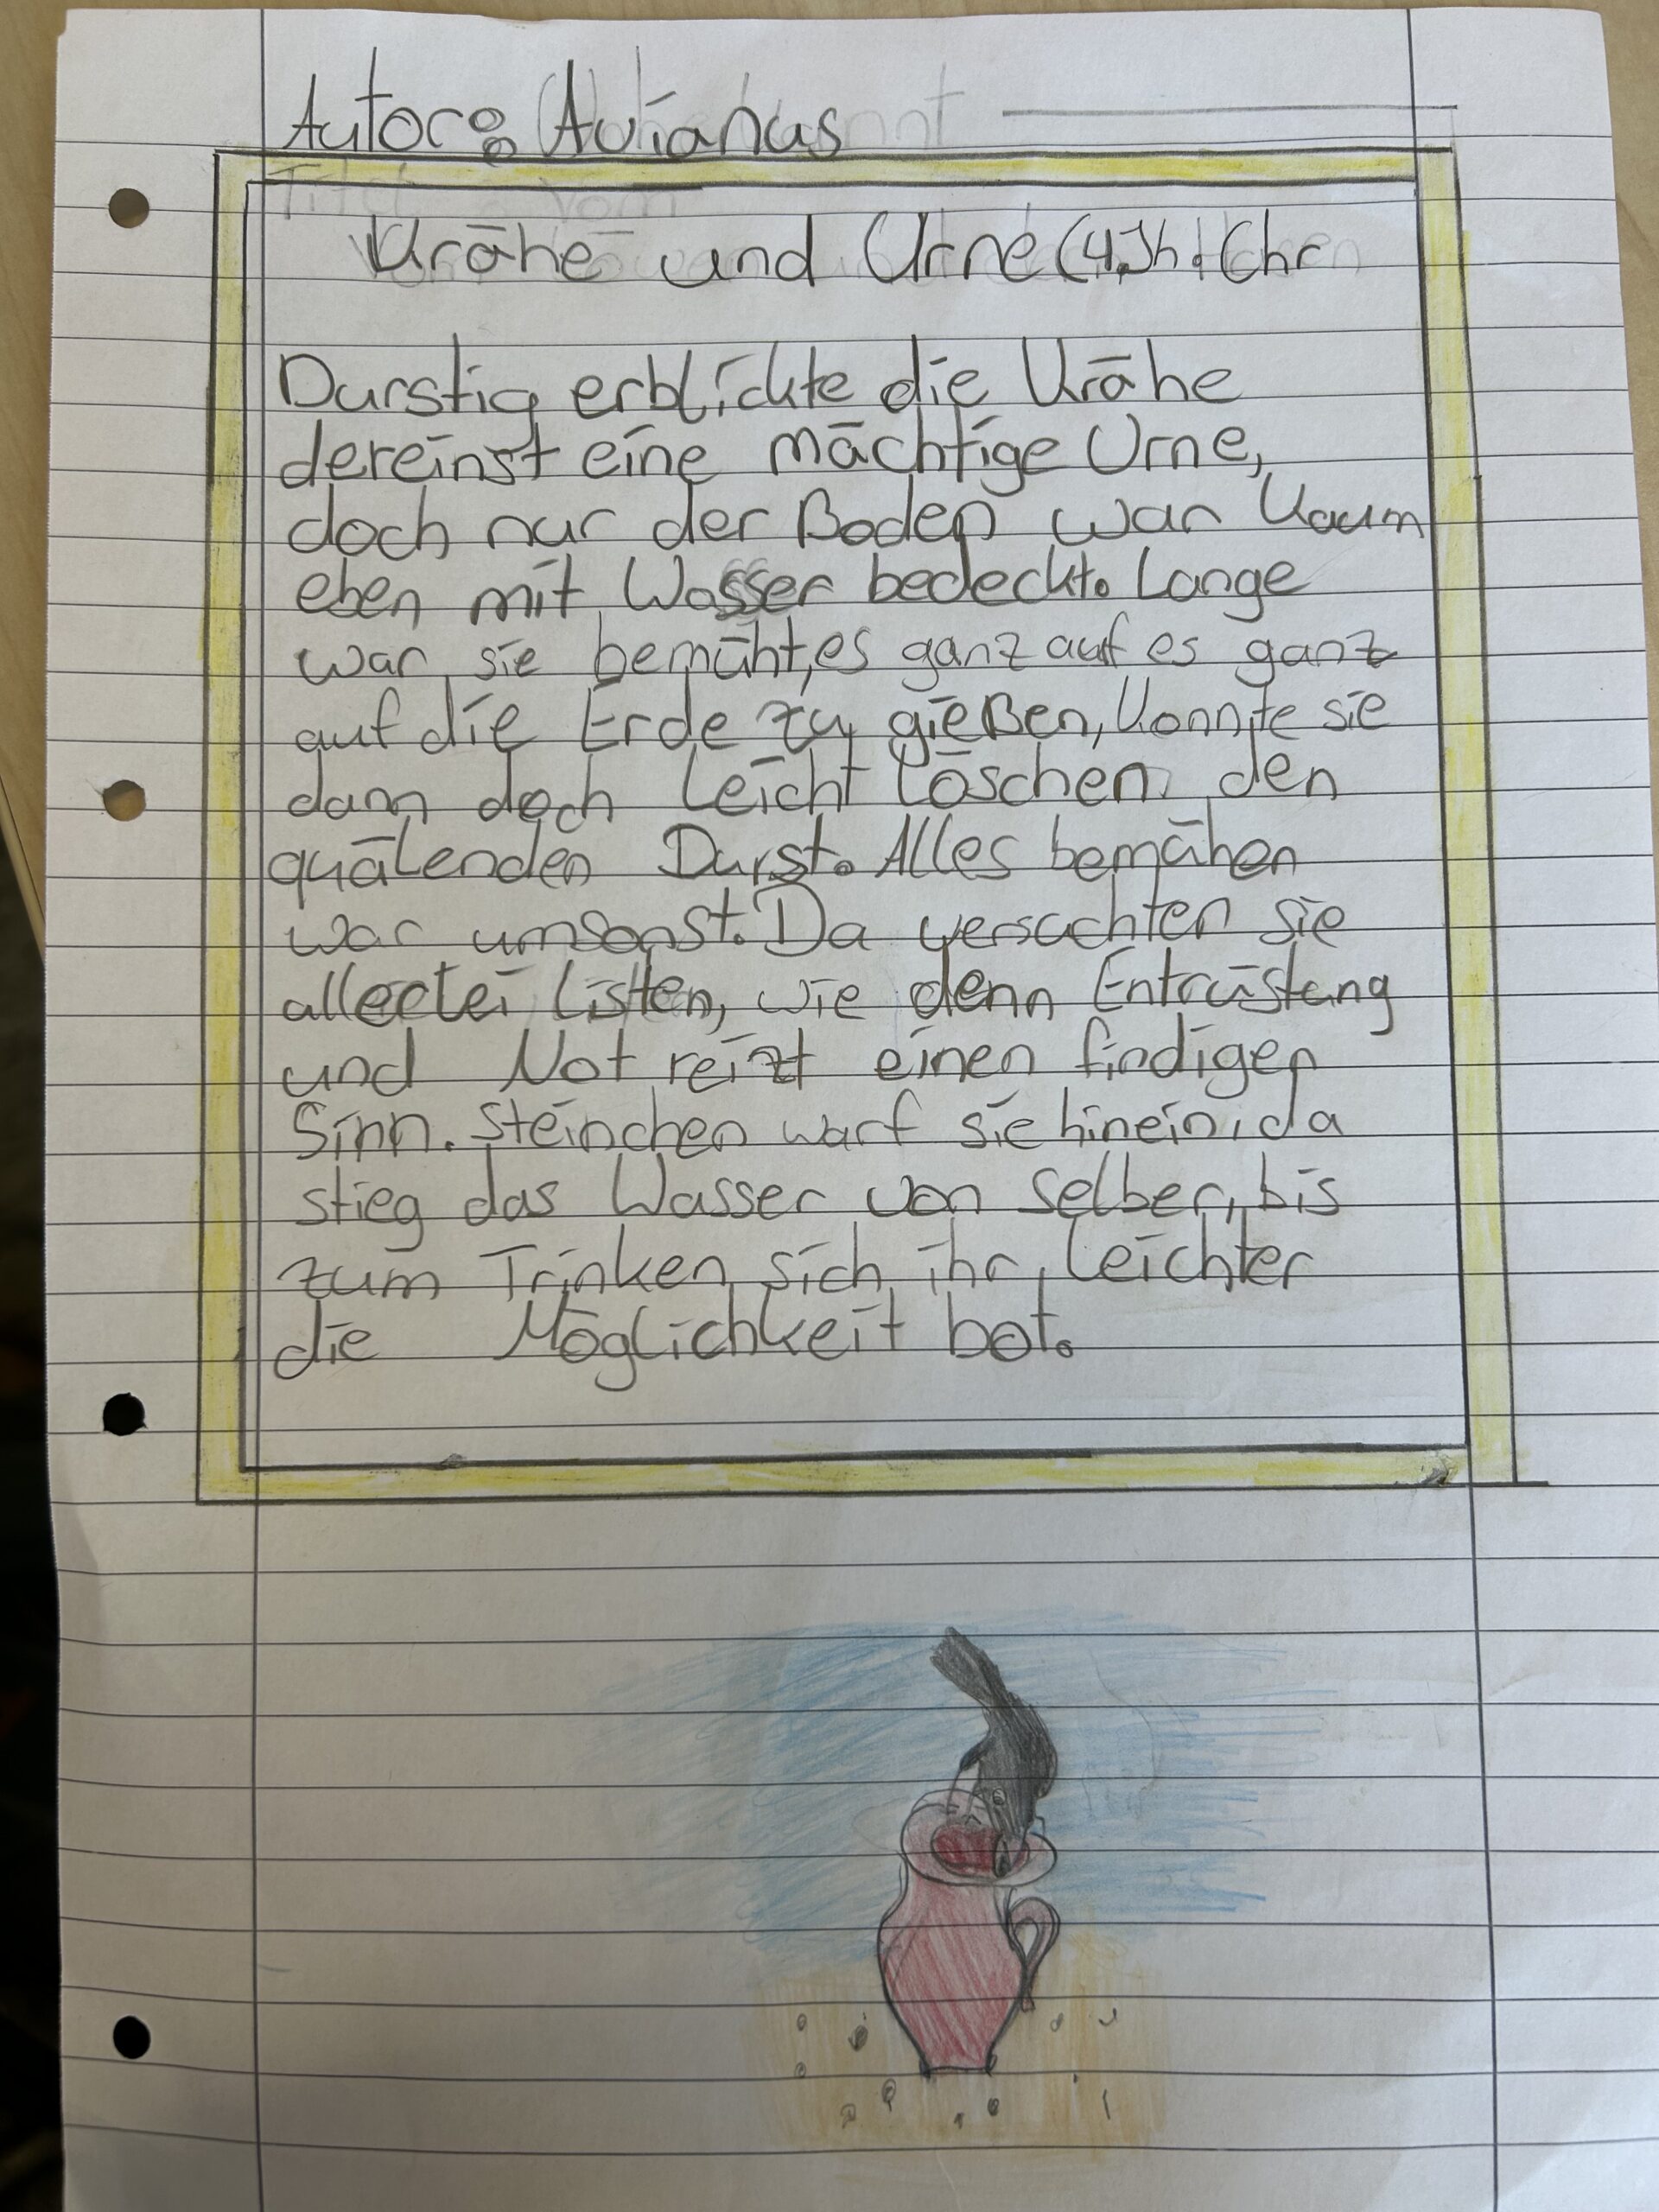 Autor: Avianus
Krähe und Urne (4.Jh. Chr
Durstig erblickte die Krähe
dereinst eine mächtige Urne,
doch nur der Boden war kaum
eben mit Wasser bedeckt. Lange
war sie bemüht, es ganz auf es ganz
auf die Erde zu gießen, konnte sie
dann doch leicht löschen den
quälenden Durst. Alles bemühen
war umsonst. Da versuchten sie
allerlei Listen, wie denn Entrüstung
und Not reizt einen findigen
Sinn. Steinchen warf sie hinein, da
stieg das Wasser von selber, bis
zum Trinken sich ihr leichter
die Möglichkeit bot.